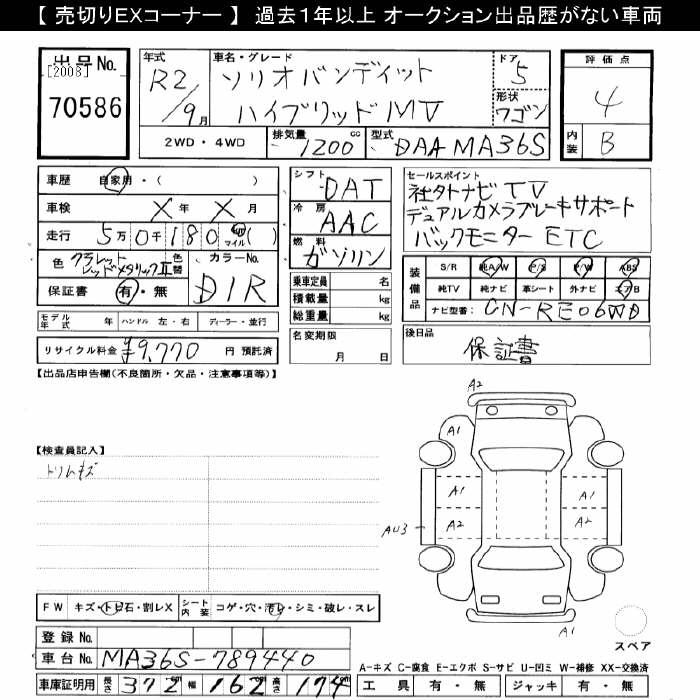 【 売切りEXコーナー 】 過去1年以上 オークション出品歴がない車両
出品No.
[2008]
70586
年式
R2/9月
車名・グレード
ソリオバンディット
ハイブリッドMV
ドア
5
形状
ワゴン
評価点
4
内装
B
2WD・4WD
排気量 1200 cc
型式 DAA MA36S
車歴 自家用・( )
車検 X年X月
走行 5万0千180 マイル ( )
色 クラレットレッドメタリックII
色替
カラーNo. D1R
保証書 有・無
シフト DAT
冷房 AAC
燃料 ガソリン
セールスポイント
社外ナビTV
デュアルカメラブレーキサポート
バックモニターETC
乗車定員 名
積載量 kg
総重量 kg
装備品
S/R 純A/W P/S P/W ABS
純TV 純ナビ 革シート 外ナビ エアB
ナビ型番: CN-RE06WD
モデル年式 年 ハンドル 左・右 ディーラー・並行
名変期限
月 日
後日品
保証書
リサイクル料金 ¥9,770 円 預託済
【出品店申告欄(不良箇所・欠品・注意事項等)】
【検査員記入】
トリムキズ
A2
A1
A1
A1
A1
A2
A2
AU3
A1
FW キズ・トビ石・割レX
シート内装 コゲ・穴・汚レ・シミ・破レ・スレ
スペア
登録No.
車台No. MA36S-789440
A-キズ C-腐食 E-エクボ S-サビ U-凹ミ W-補修 XX-交換済
車庫証明用 長さ 372 cm 幅 162 cm 高さ 174 cm
工具 有・無 ジャッキ 有・無